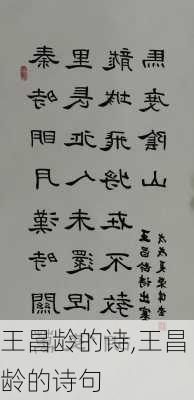 秦時明月漢時關
里長征人未還但
龍城飛將在不教
馬度陰山
王昌齡詩出塞
王昌龄的诗,王昌
龄的诗句